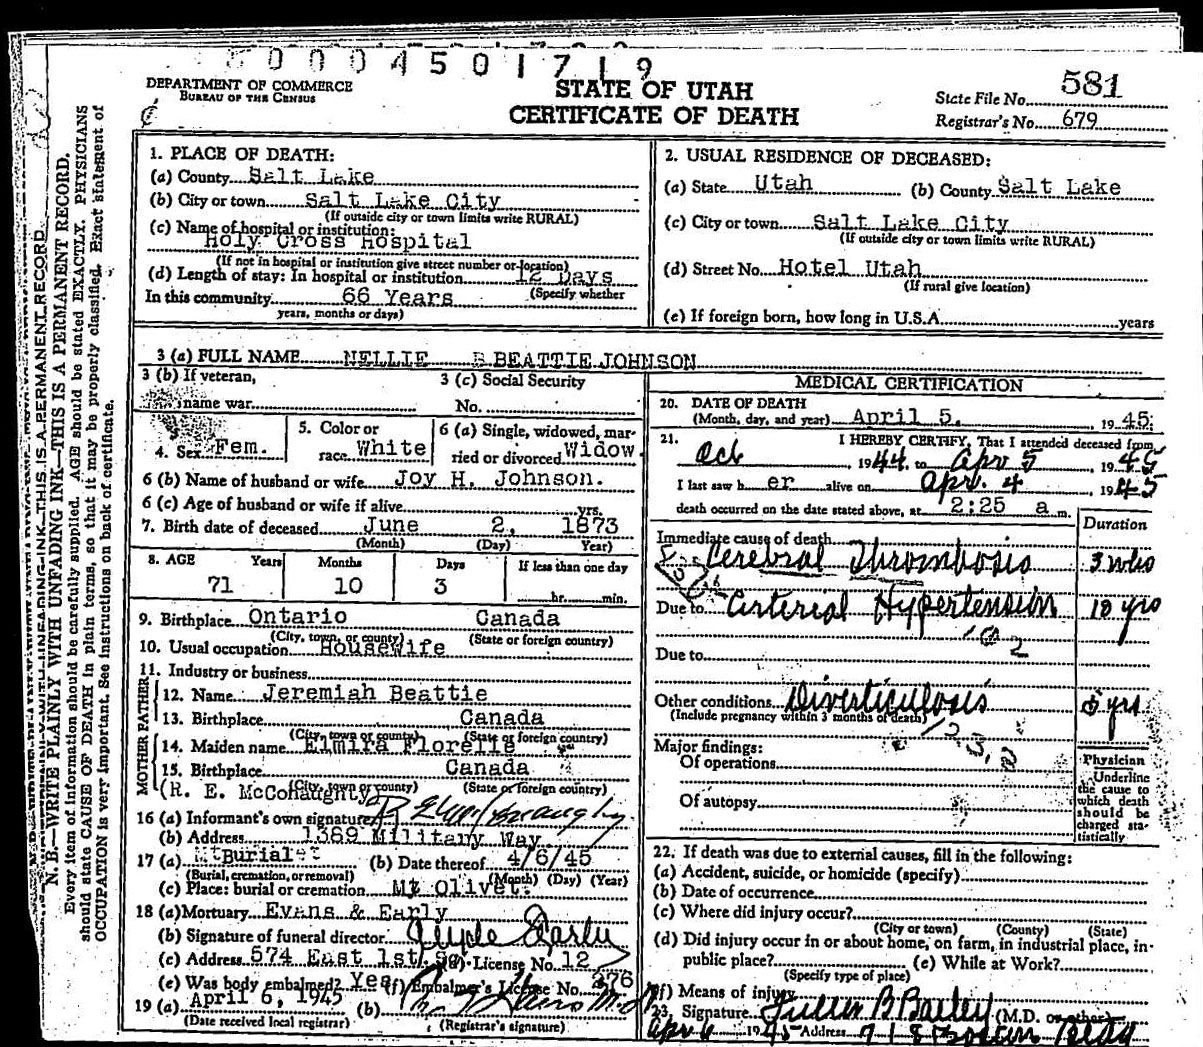 0004501719
DEPARTMENT OF COMMERCE
BUREAU OF THE CENSUS
STATE OF UTAH
CERTIFICATE OF DEATH
State File No. 581
Registrar's No. 679
N. B.—WRITE PLAINLY WITH UNFADING INK—THIS IS A PERMANENT RECORD.
Every item of information should be carefully supplied. AGE should be stated EXACTLY. PHYSICIANS
should state CAUSE OF DEATH in plain terms, so that it may be properly classified. Exact statement of
OCCUPATION is very important. See instructions on back of certificate.
1. PLACE OF DEATH:
(a) County Salt Lake
(b) City or town Salt Lake City
(If outside city or town limits write RURAL)
(c) Name of hospital or institution:
Holy Cross Hospital
(If not in hospital or institution give street number or location)
(d) Length of stay: In hospital or institution 12 Days
(Specify whether
In this community 66 Years
years, months or days)
2. USUAL RESIDENCE OF DECEASED:
(a) State Utah (b) County Salt Lake
(c) City or town Salt Lake City
(If outside city or town limits write RURAL)
(d) Street No. Hotel Utah
(If rural give location)
(e) If foreign born, how long in U.S.A. years
3 (a) FULL NAME NELLIE B BEATTIE JOHNSON
3 (b) If veteran,
name war
3 (c) Social Security
No.
4. Sex Fem.
5. Color or
race White
6 (a) Single, widowed, mar-
ried or divorced Widow
6 (b) Name of husband or wife Joy H. Johnson.
6 (c) Age of husband or wife if alive yrs.
7. Birth date of deceased June 2, 1873
(Month) (Day) (Year)
8. AGE Years Months Days If less than one day
71 10 3 hr. min.
9. Birthplace Ontario Canada
(City, town, or county) (State or foreign country)
10. Usual occupation Housewife
11. Industry or business
FATHER
12. Name Jeremiah Beattie
13. Birthplace Canada
(City, town or county) (State or foreign country)
MOTHER
14. Maiden name Elmira Florelle
15. Birthplace Canada
(City, town or county) (State or foreign country)
(R. E. McConaughty
16 (a) Informant's own signature
(b) Address 1389 Military Way
17 (a) Burial (b) Date thereof 4/6/45
(Burial, cremation, or removal) (Month) (Day) (Year)
(c) Place: burial or cremation Mt Olivet.
18 (a) Mortuary Evans & Early
(b) Signature of funeral director Clyde Early
(c) Address 574 East 1st So. (d) License No. 12
(e) Was body embalmed? Yes (f) Embalmer's License No. 276
19 (a) April 6, 1945 (b)
(Date received local registrar) (Registrar's signature)
MEDICAL CERTIFICATION
20. DATE OF DEATH
(Month, day, and year) April 5, 1945.
21. I HEREBY CERTIFY, That I attended deceased from
Oct, 1944, to Apr 5, 1945
I last saw h er alive on Apr. 4, 1945
death occurred on the date stated above, at 2:25 a m.
Duration
Immediate cause of death
Cerebral Thrombosis 3 wks
Due to Arterial Hypertension 10 yrs
Due to
Other conditions Diverticulosis 5 yrs
(Include pregnancy within 3 months of death)
Major findings:
Of operations
Of autopsy
Physician
Underline
the cause to
which death
should be
charged sta-
tistically
22. If death was due to external causes, fill in the following:
(a) Accident, suicide, or homicide (specify)
(b) Date of occurrence
(c) Where did injury occur?
(City or town) (County) (State)
(d) Did injury occur in or about home, on farm, in industrial place, in
public place? (e) While at Work?
(Specify type of place)
(f) Means of injury
23. Signature Fuller B Bailey (M.D. or other)
Apr 6 1945 Address 718 Boston Bldg